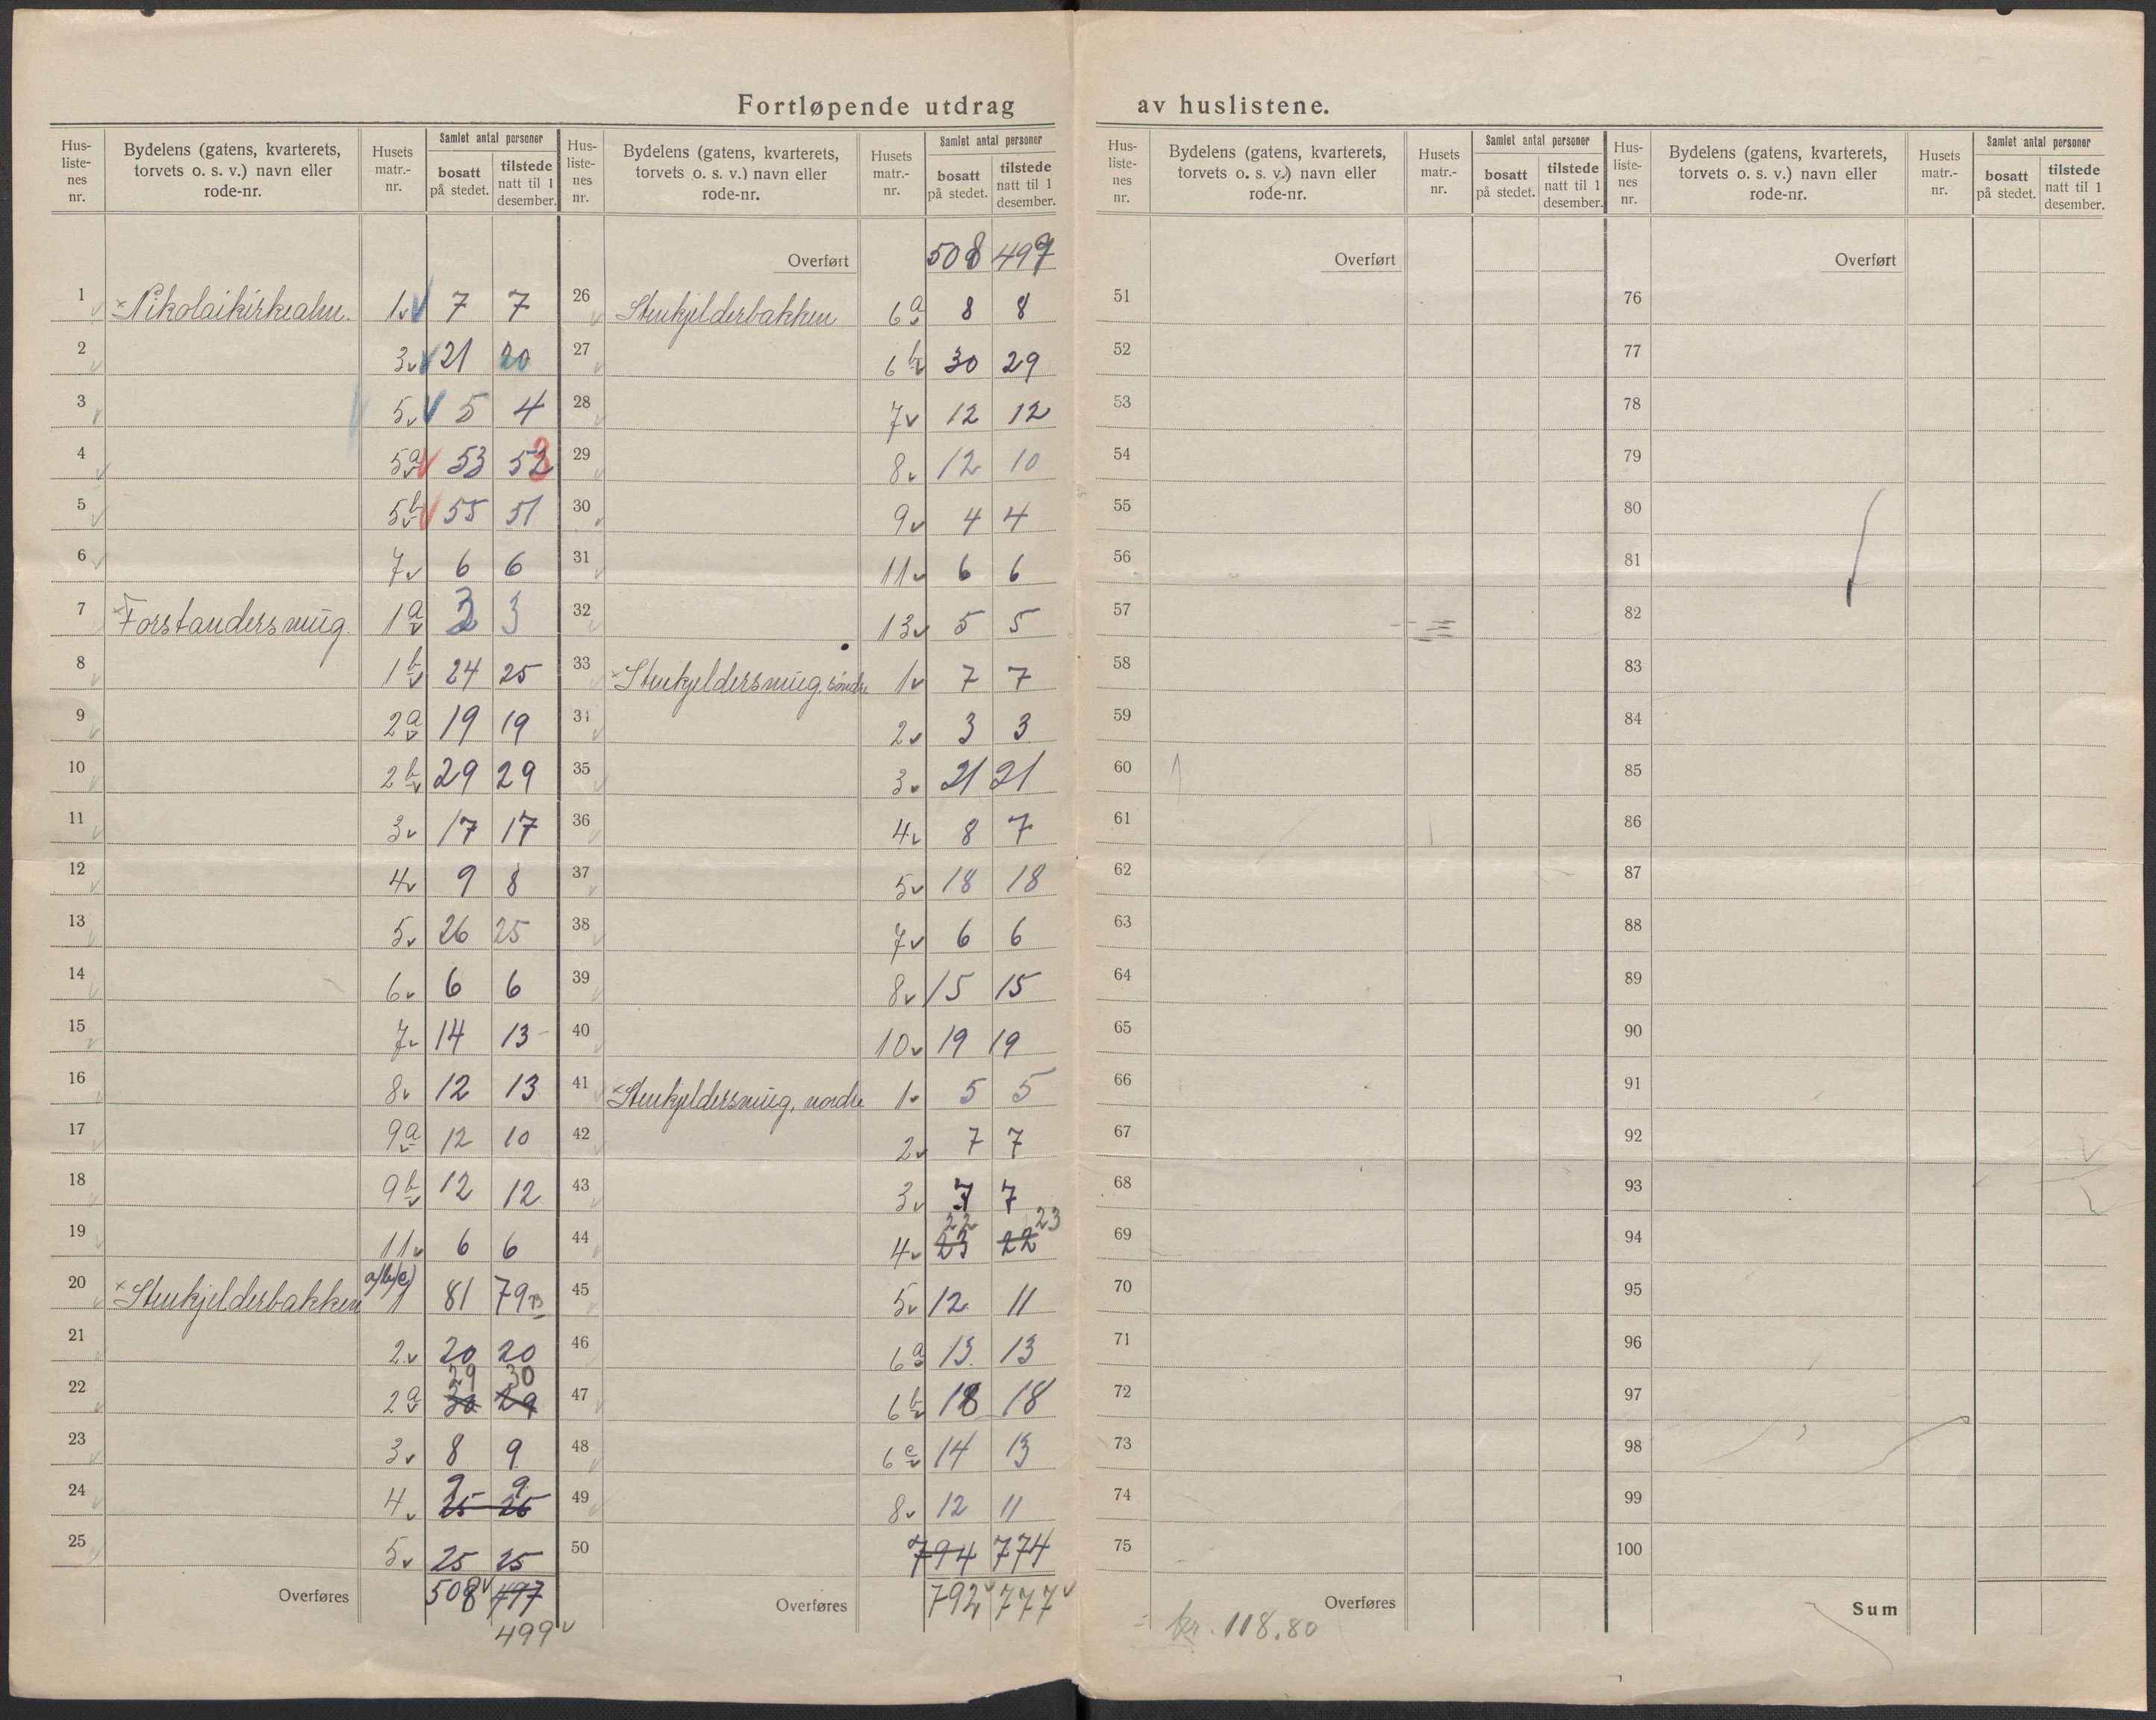 Fortløpende utdrag av huslistene.
Hus-liste-nes nr. | Bydelens (gatens, kvarterets, torvets o. s. v.) navn eller rode-nr. | Husets matr.-nr. | Samlet antal personer bosatt på stedet. | tilstede natt til 1 desember.
1 Nikolaikirkealm. 1 7 7
2 3 21 20
3 5 5 4
4 5a 53 53
5 5b 55 51
6 7 6 6
7 Forstandersmug. 1a 3 3
8 1b 24 25
9 2a 19 19
10 2b 29 29
11 3 17 17
12 4 9 8
13 5 26 25
14 6 6 6
15 7 14 13
16 8 12 13
17 9a 12 10
18 9b 12 12
19 11 6 6
20 Stenkjelderbakken a/b/c) 1 81 79
21 2 20 20
22 2a 30 29 29 30
23 3 8 9
24 4 25 25 9 9
25 5 25 25
Overføres 508 497
499
Hus-liste-nes nr. | Bydelens (gatens, kvarterets, torvets o. s. v.) navn eller rode-nr. | Husets matr.-nr. | Samlet antal personer bosatt på stedet. | tilstede natt til 1 desember.
Overført 508 499
26 Stenkjelderbakken 6a 8 8
27 6b 30 29
28 7 12 12
29 8 12 10
30 9 4 4
31 11 6 6
32 13 5 5
33 Stenkjeldersmug, søndre 1 7 7
34 2 3 3
35 3 21 21
36 4 8 7
37 5 18 18
38 7 6 6
39 8 15 15
40 10 19 19
41 Stenkjeldersmug, nordre 1 5 5
42 2 7 7
43 3 7 7
44 4 23 22 22 23
45 5 12 11
46 6a 13 13
47 6b 18 18
48 6c 14 13
49 8 12 11
50 794 774
Overføres 792 777
Hus-liste-nes nr. | Bydelens (gatens, kvarterets, torvets o. s. v.) navn eller rode-nr. | Husets matr.-nr. | Samlet antal personer bosatt på stedet. | tilstede natt til 1 desember.
Overført
51
52
53
54
55
56
57
58
59
60
61
62
63
64
65
66
67
68
69
70
71
72
73
74
75
Overføres
kr. 118.80
Hus-liste-nes nr. | Bydelens (gatens, kvarterets, torvets o. s. v.) navn eller rode-nr. | Husets matr.-nr. | Samlet antal personer bosatt på stedet. | tilstede natt til 1 desember.
Overført
76
77
78
79
80
81
82
83
84
85
86
87
88
89
90
91
92
93
94
95
96
97
98
99
100
Sum